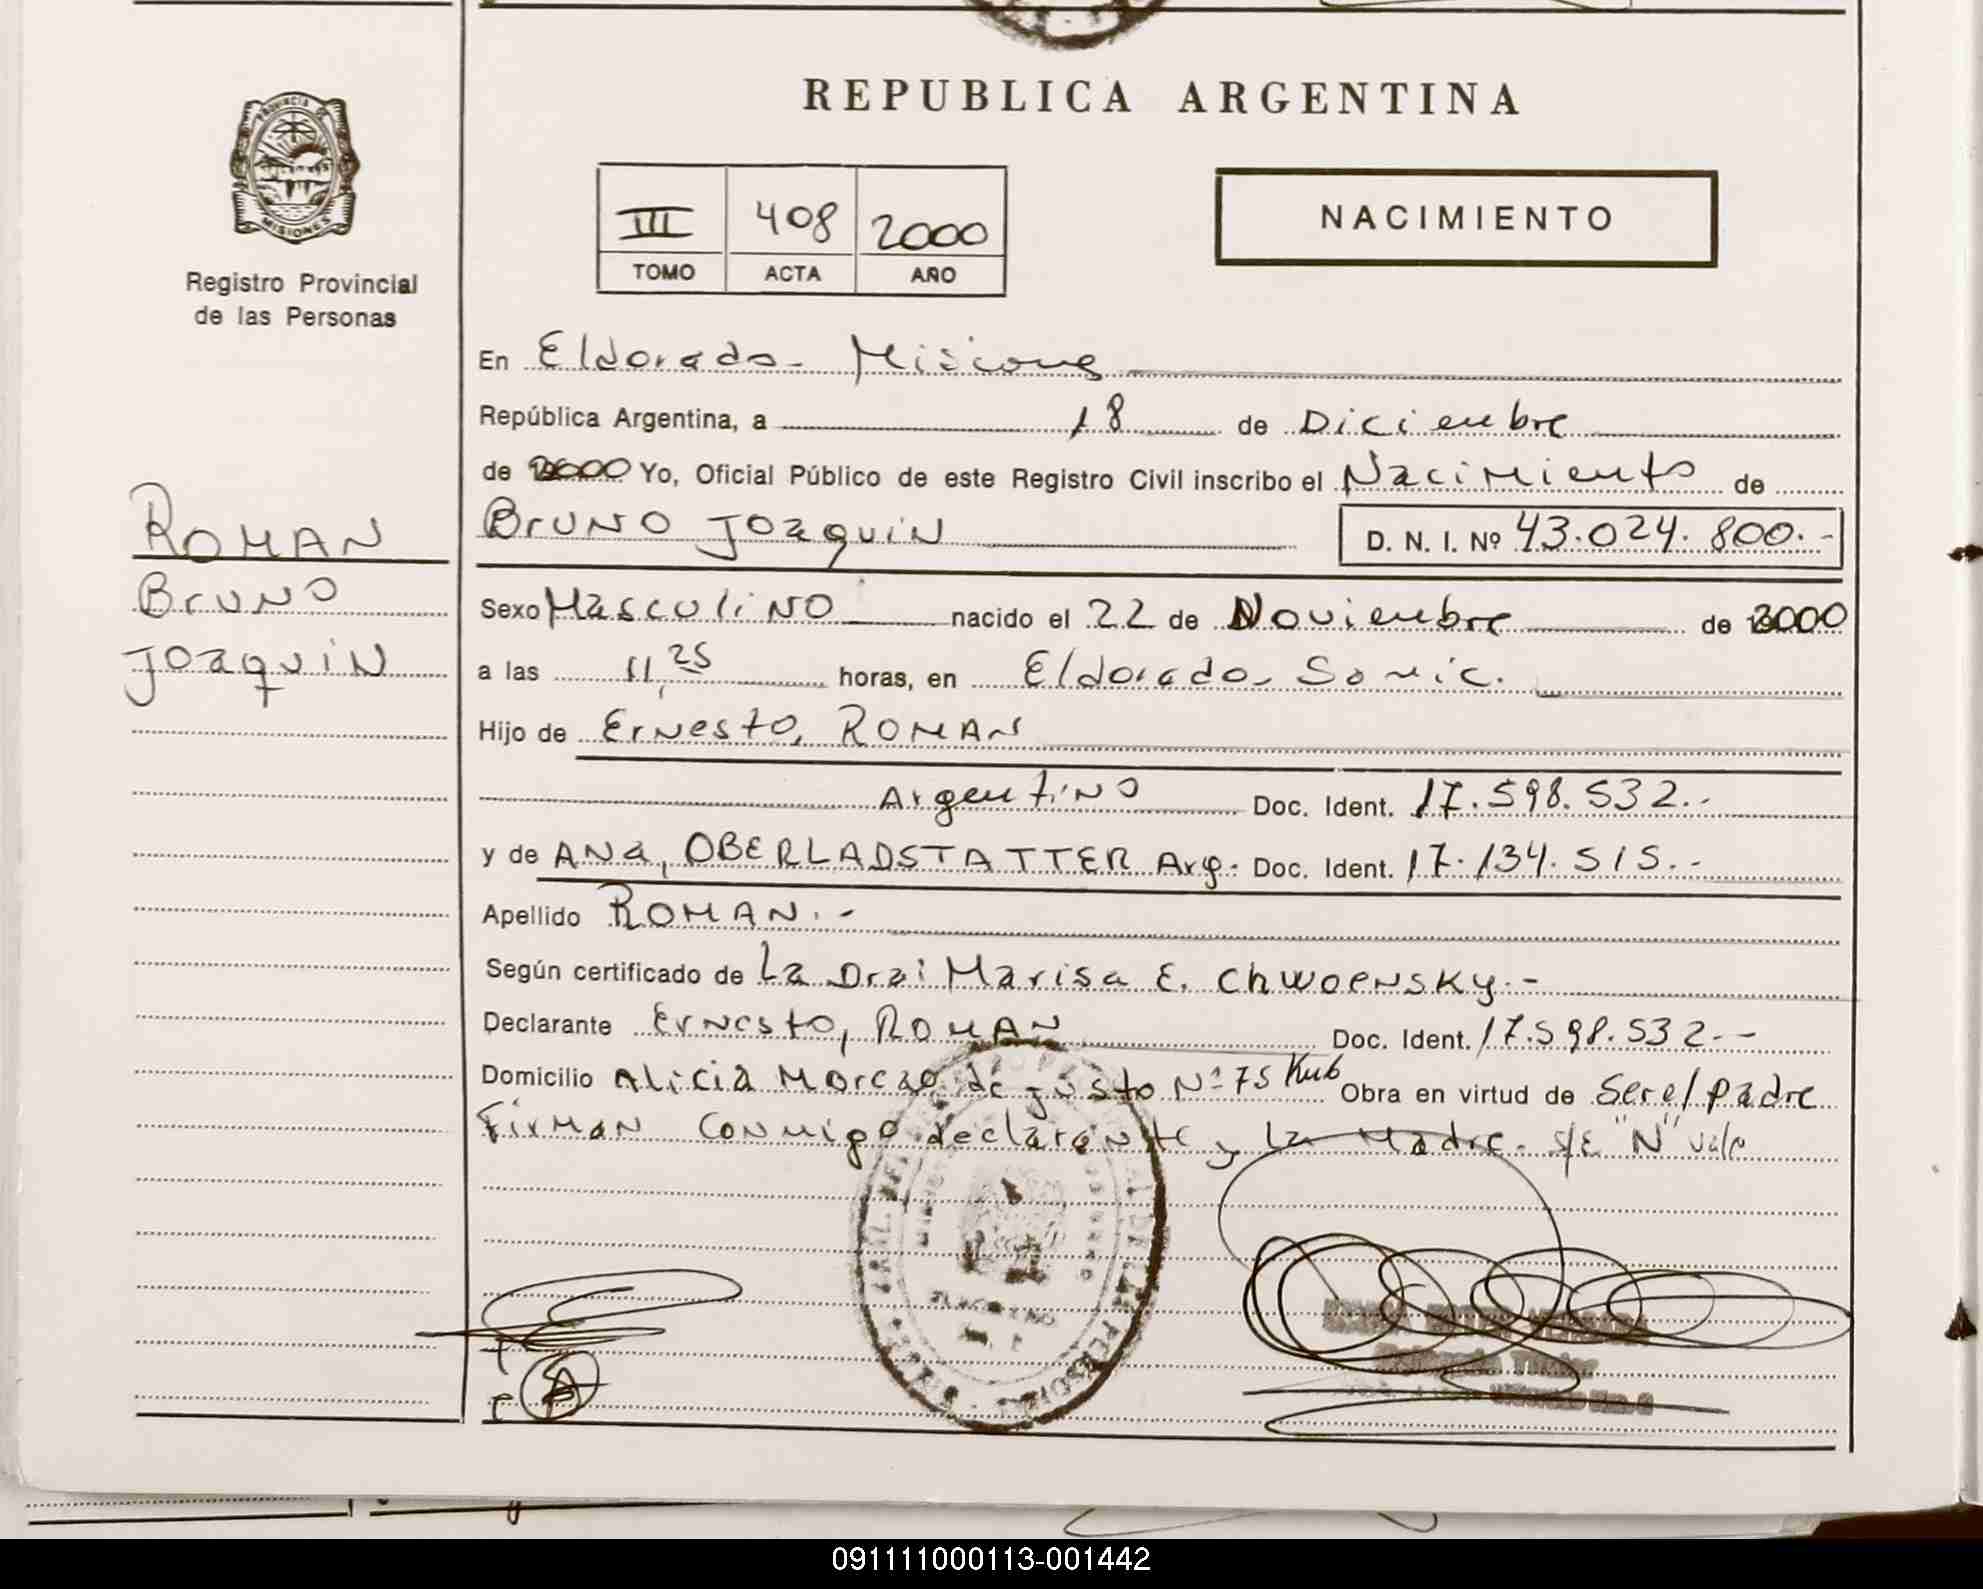 REPUBLICA ARGENTINA
PROVINCIA DE
MISIONES
Registro Provincial
de las Personas
III 408 2000
TOMO ACTA AÑO
NACIMIENTO
En Eldorado - Misiones
República Argentina, a 18 de Diciembre
de 2000 Yo, Oficial Público de este Registro Civil inscribo el Nacimiento de
Bruno Joaquin D. N. I. Nº 43.024.800.-
ROMAN
Bruno
Joaquin
Sexo Masculino nacido el 22 de Noviembre de 2000
a las 11,25 horas, en Eldorado - Somic.
Hijo de Ernesto, ROMAN
Argentino Doc. Ident. 17.598.532.-
y de Ana, OBERLADSTATTER Arg. Doc. Ident. 17.134.515.-
Apellido ROMAN.-
Según certificado de La Dra: Marisa E. Chwoensky.-
Declarante Ernesto, ROMAN Doc. Ident. 17.598.532.-
Domicilio Alicia Moreao de justo Nº 75 Km6 Obra en virtud de Ser el padre
Firman conmigo declarante y la Madre. s/E "N" vale
091111000113-001442